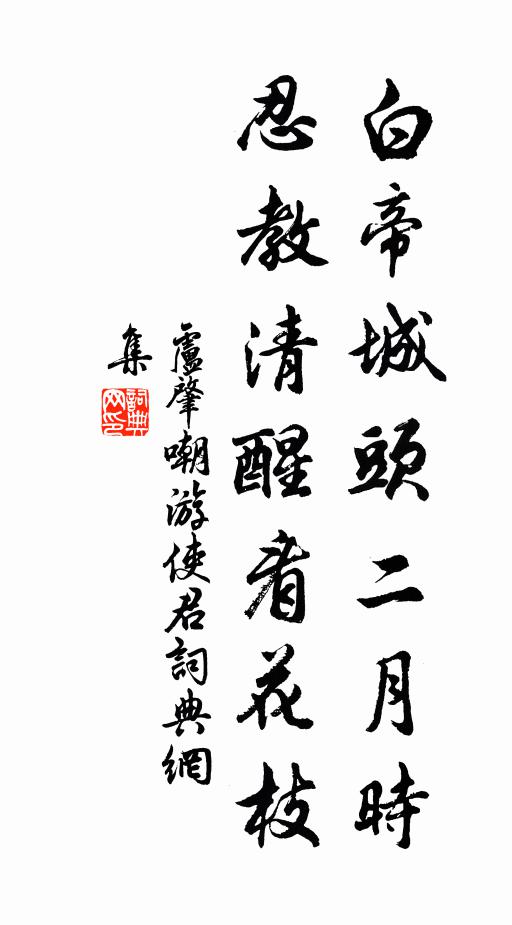 白帝城頭二月時
忍教清醒看花枝
盧肇嘲游使君詞典網
集
詞典
网印